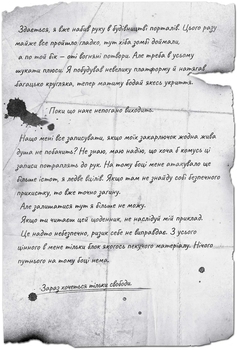 Здається, я вже набив руку в будівництві порталів. Цього разу
майже все пройшло гладко, тут хіба зомбі доймали,
а по той бік — оті вогняні потвори. Але треба в усьому
шукати плюси. Я побудував невелику платформу й натягав
багацько кругляка, тепер матиму бодай якесь укриття.
Поки що наче непогано виходить.
Нащо мені все записувати, якщо моїх закарлючок жодна жива
душа не побачить? Не знаю, маю надію, що хоча б комусь ці
записи потраплять до рук. На тому боці мене атакувало ще
більше істот, я ледве вцілів. Якщо там не знайду собі безпечного
прихистку, то вже точно загину.
Але залишатися тут я більше не можу.
Якщо ти читаєш цей щоденник, не наслідуй мій приклад.
Це надто небезпечно, ризик себе не виправдає. З усього
цінного в мене тільки блок якогось пекучого матеріалу. Нічого
путнього на тому боці нема.
Зараз хочеться тільки свободи.